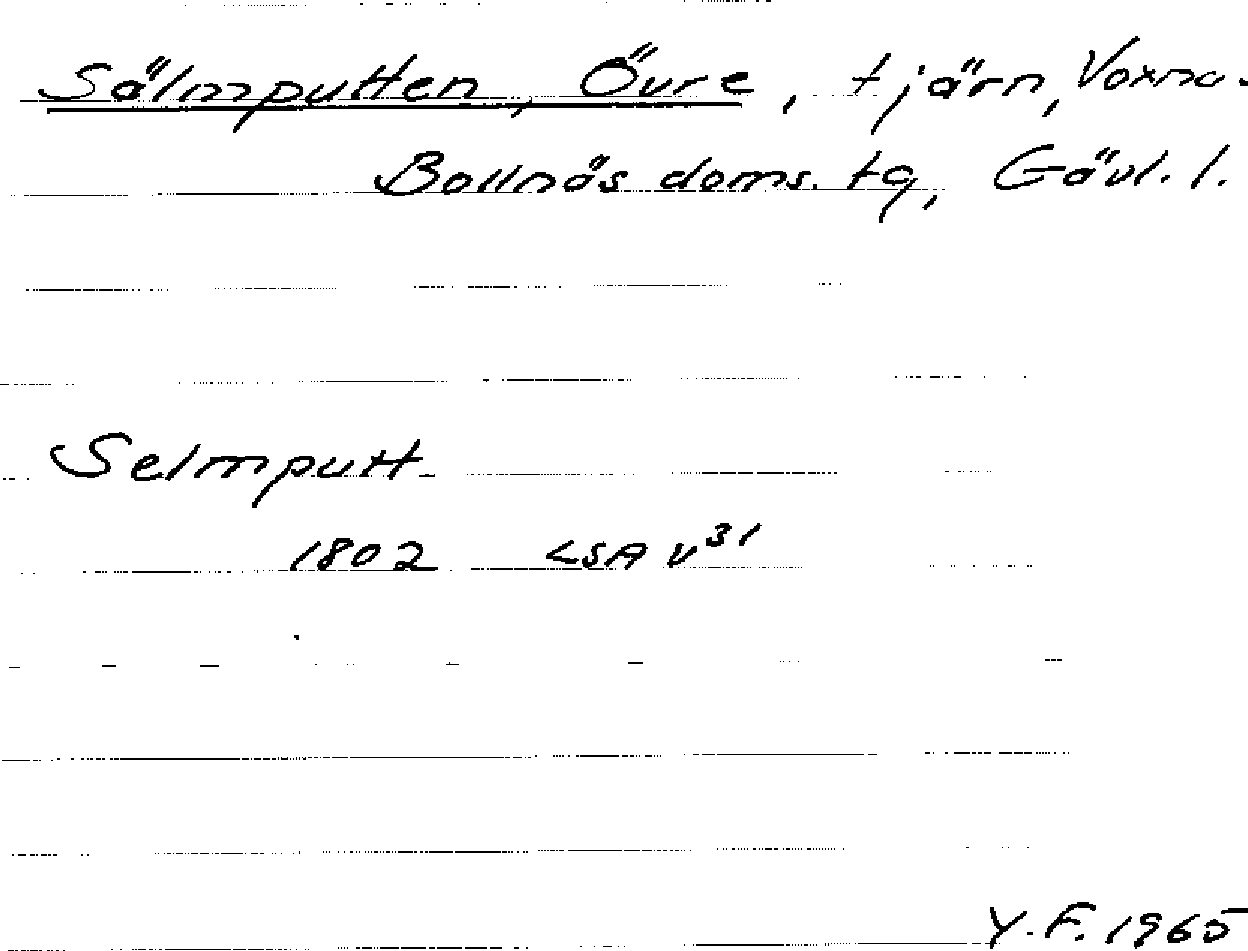 Sälmputten, Övre, tjärn, Voxna-
Bollnäs doms. tg, Gävl. l.
Selmputt
1802 LSA V³¹
Y.F. 1965